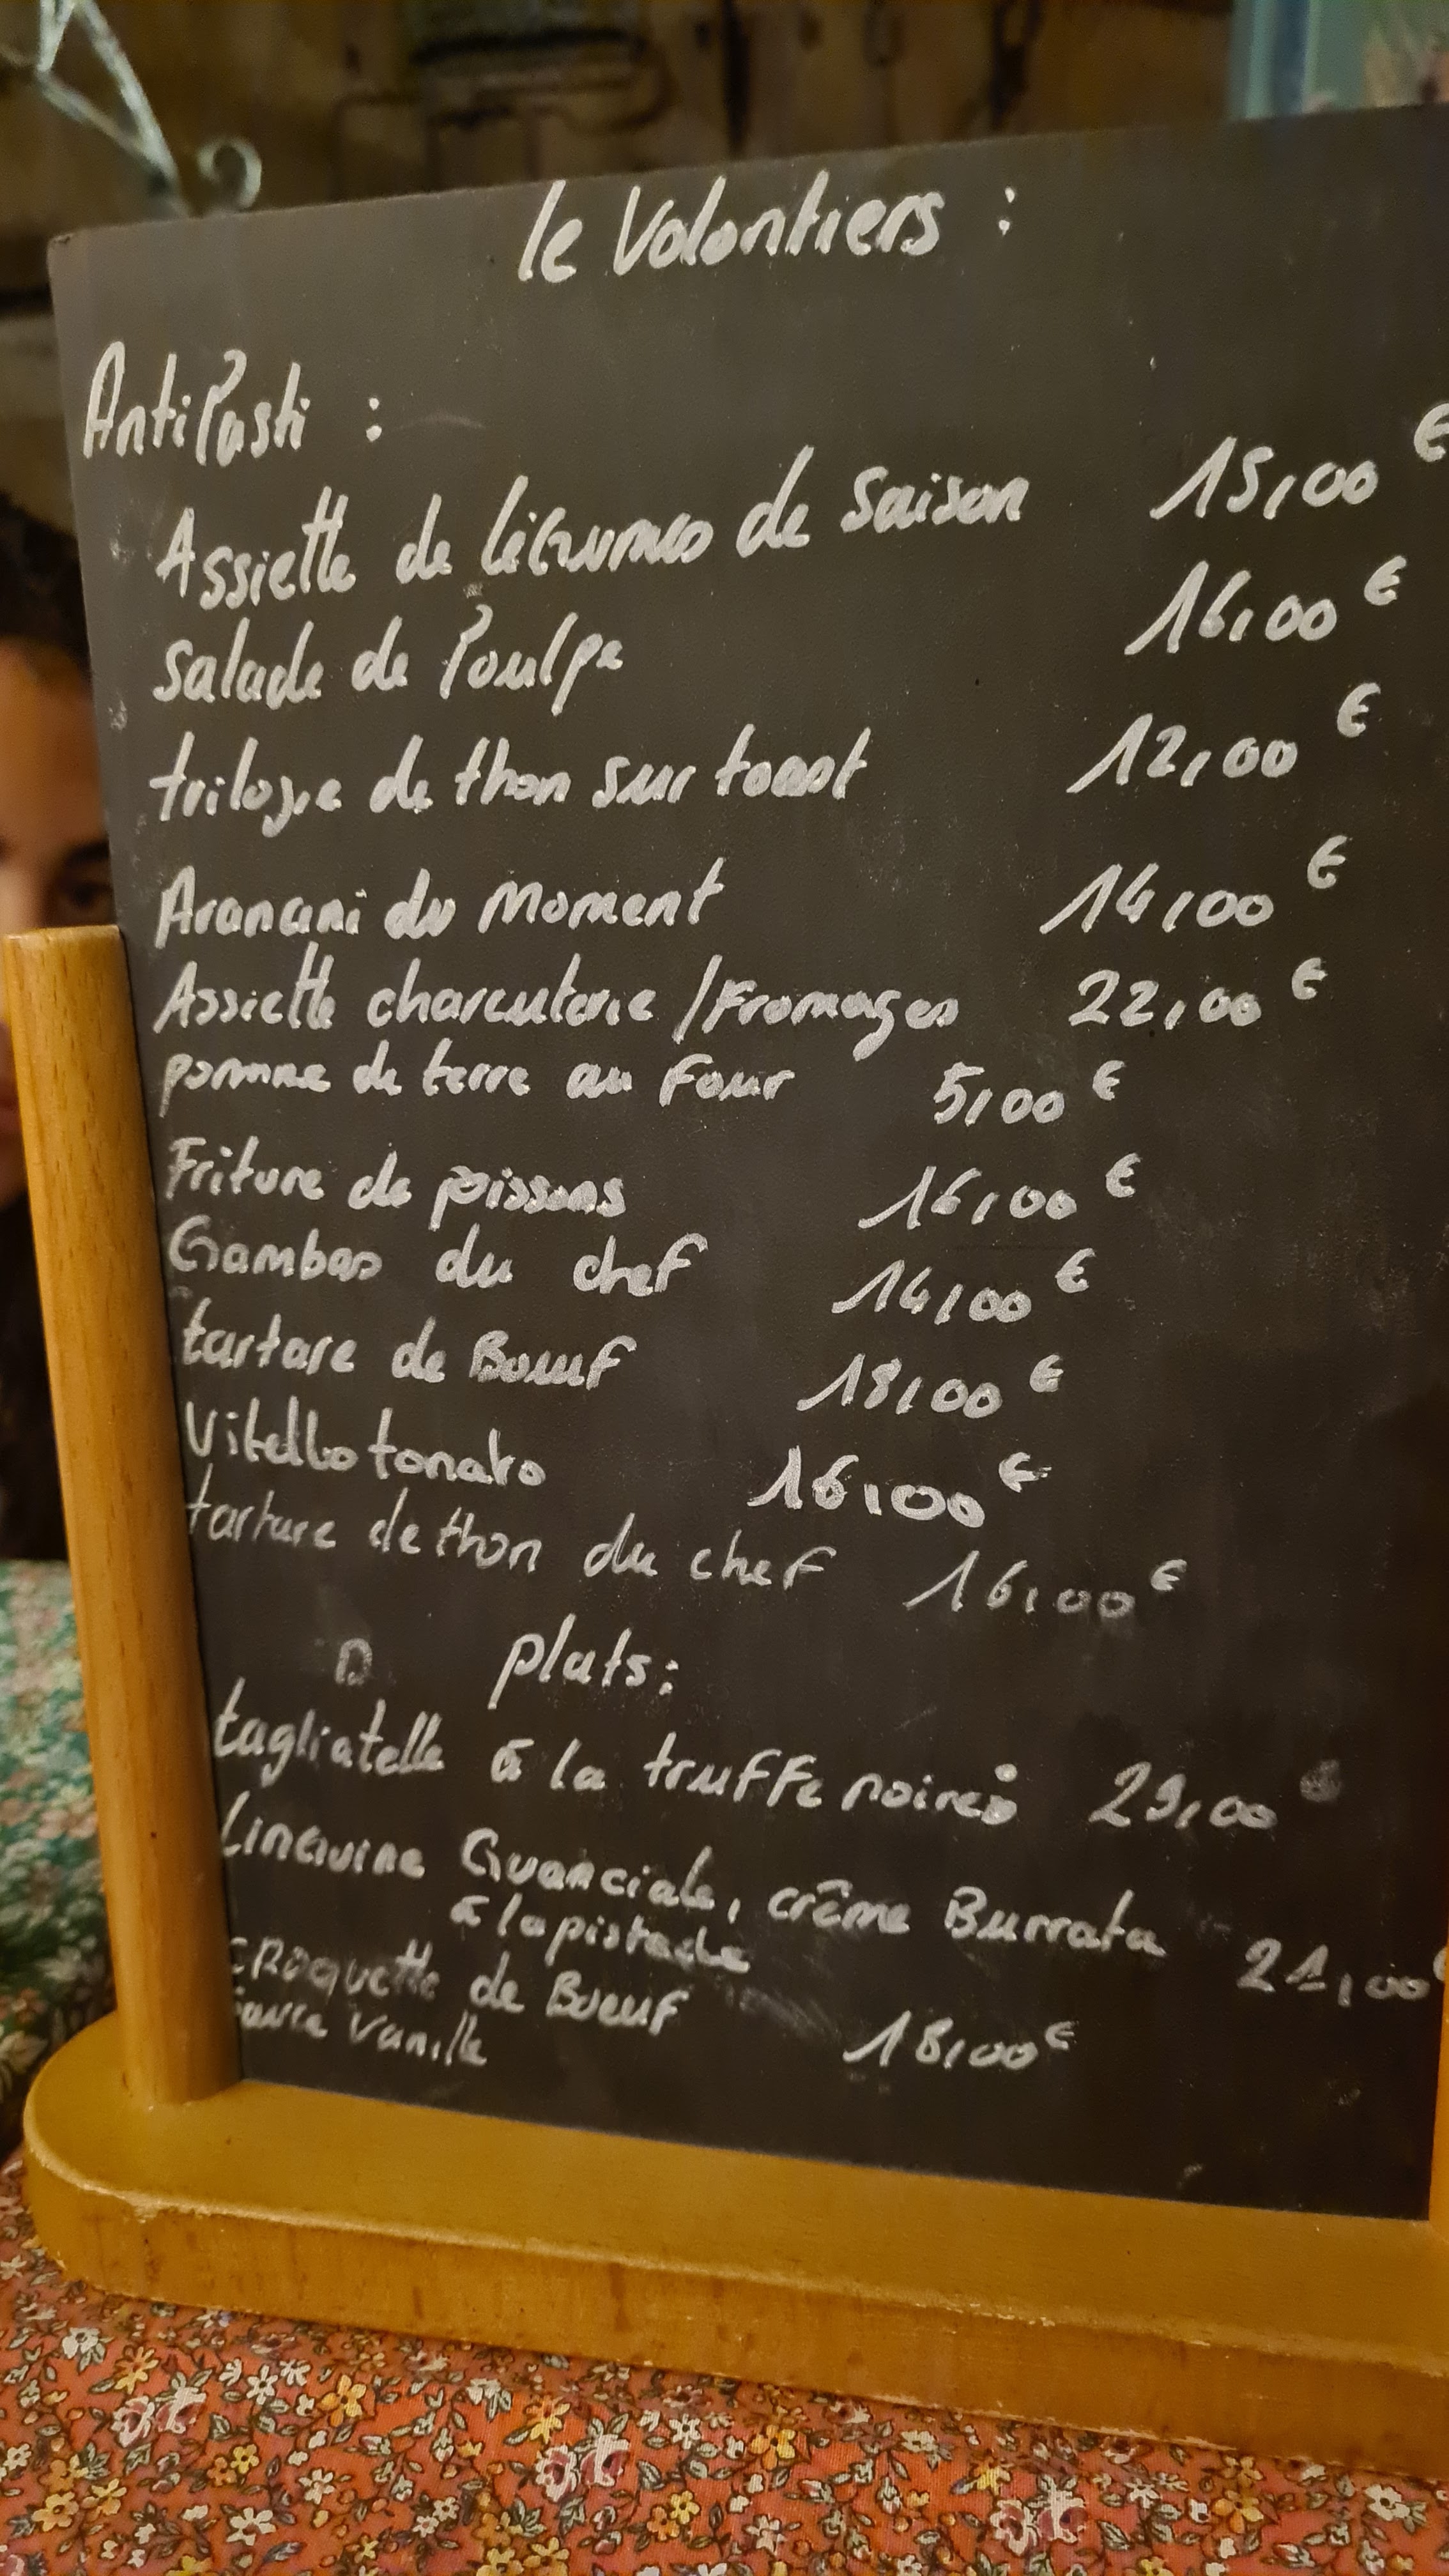 le Volontiers :
AntiPasti :
Assiette de légumes de Saison 15,00 €
Salade de Poulpe 16,00 €
trilogie de thon sur toast 12,00 €
Arancini du Moment 14,00 €
Assiette charcuterie / Fromages 22,00 €
pomme de terre au Four 5,00 €
Friture de poissons 16,00 €
Gambas du chef 14,00 €
tartare de Boeuf 18,00 €
Vitello tonato 16,00 €
tartare de thon du chef 16,00 €
plats :
tagliatelle à la truffe noire 29,00 €
Linguine Guanciale, crème Burrata
à la pistache 21,00 €
CROquette de Boeuf
Sauce Vanille 18,00 €